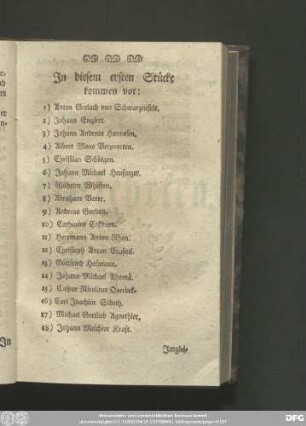 In diesem ersten Stücke
kommen vor:
1) Anton Gerlach von Schwarzenfels.
2) Johann Englert.
3) Johann Andreas
4) Albert Meno Verpoorten.
5) Christian Schöttgen.
6) Johann Michael Heusinger.
7) Wilhelm Whiston.
8) Abraham Vater.
9) Andreas Gordon.
10) Catharine Cockburn.
11) Herrmann Anton
12) Christoph Anton
13) Gottfried Hofmann.
14) Johann Michael Thomä.
15) Caspar Nicolaus Overbek.
16) Carl Joachim Sibeth.
17) Michael Gottlieb Agnethler.
18) Johann Melchior Kraft.
Jungle-
In
DFG